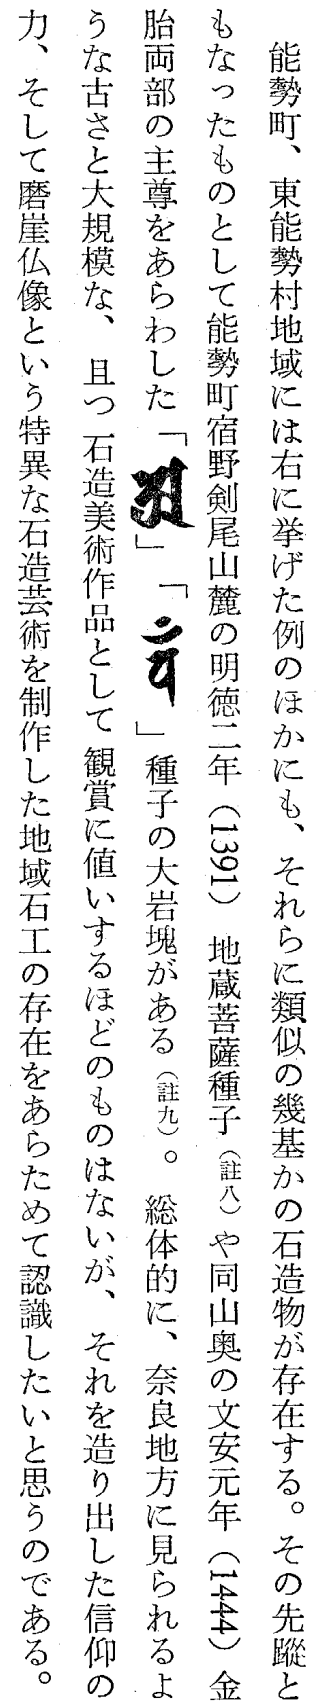 能勢町、東能勢村地域には右に挙げた例のほかにも、それらに類似の幾基かの石造物が存在する。その先蹤と
もなったものとして能勢町宿野剣尾山麓の明徳二年（1391）地蔵菩薩種子（註八）や同山奥の文安元年（1444）金
胎両部の主尊をあらわした「」「」種子の大岩塊がある（註九）。総体的に、奈良地方に見られるよ
うな古さと大規模な、且つ石造美術作品として観賞に値いするほどのものはないが、それを造り出した信仰の
力、そして磨崖仏像という特異な石造芸術を制作した地域石工の存在をあらためて認識したいと思うのである。